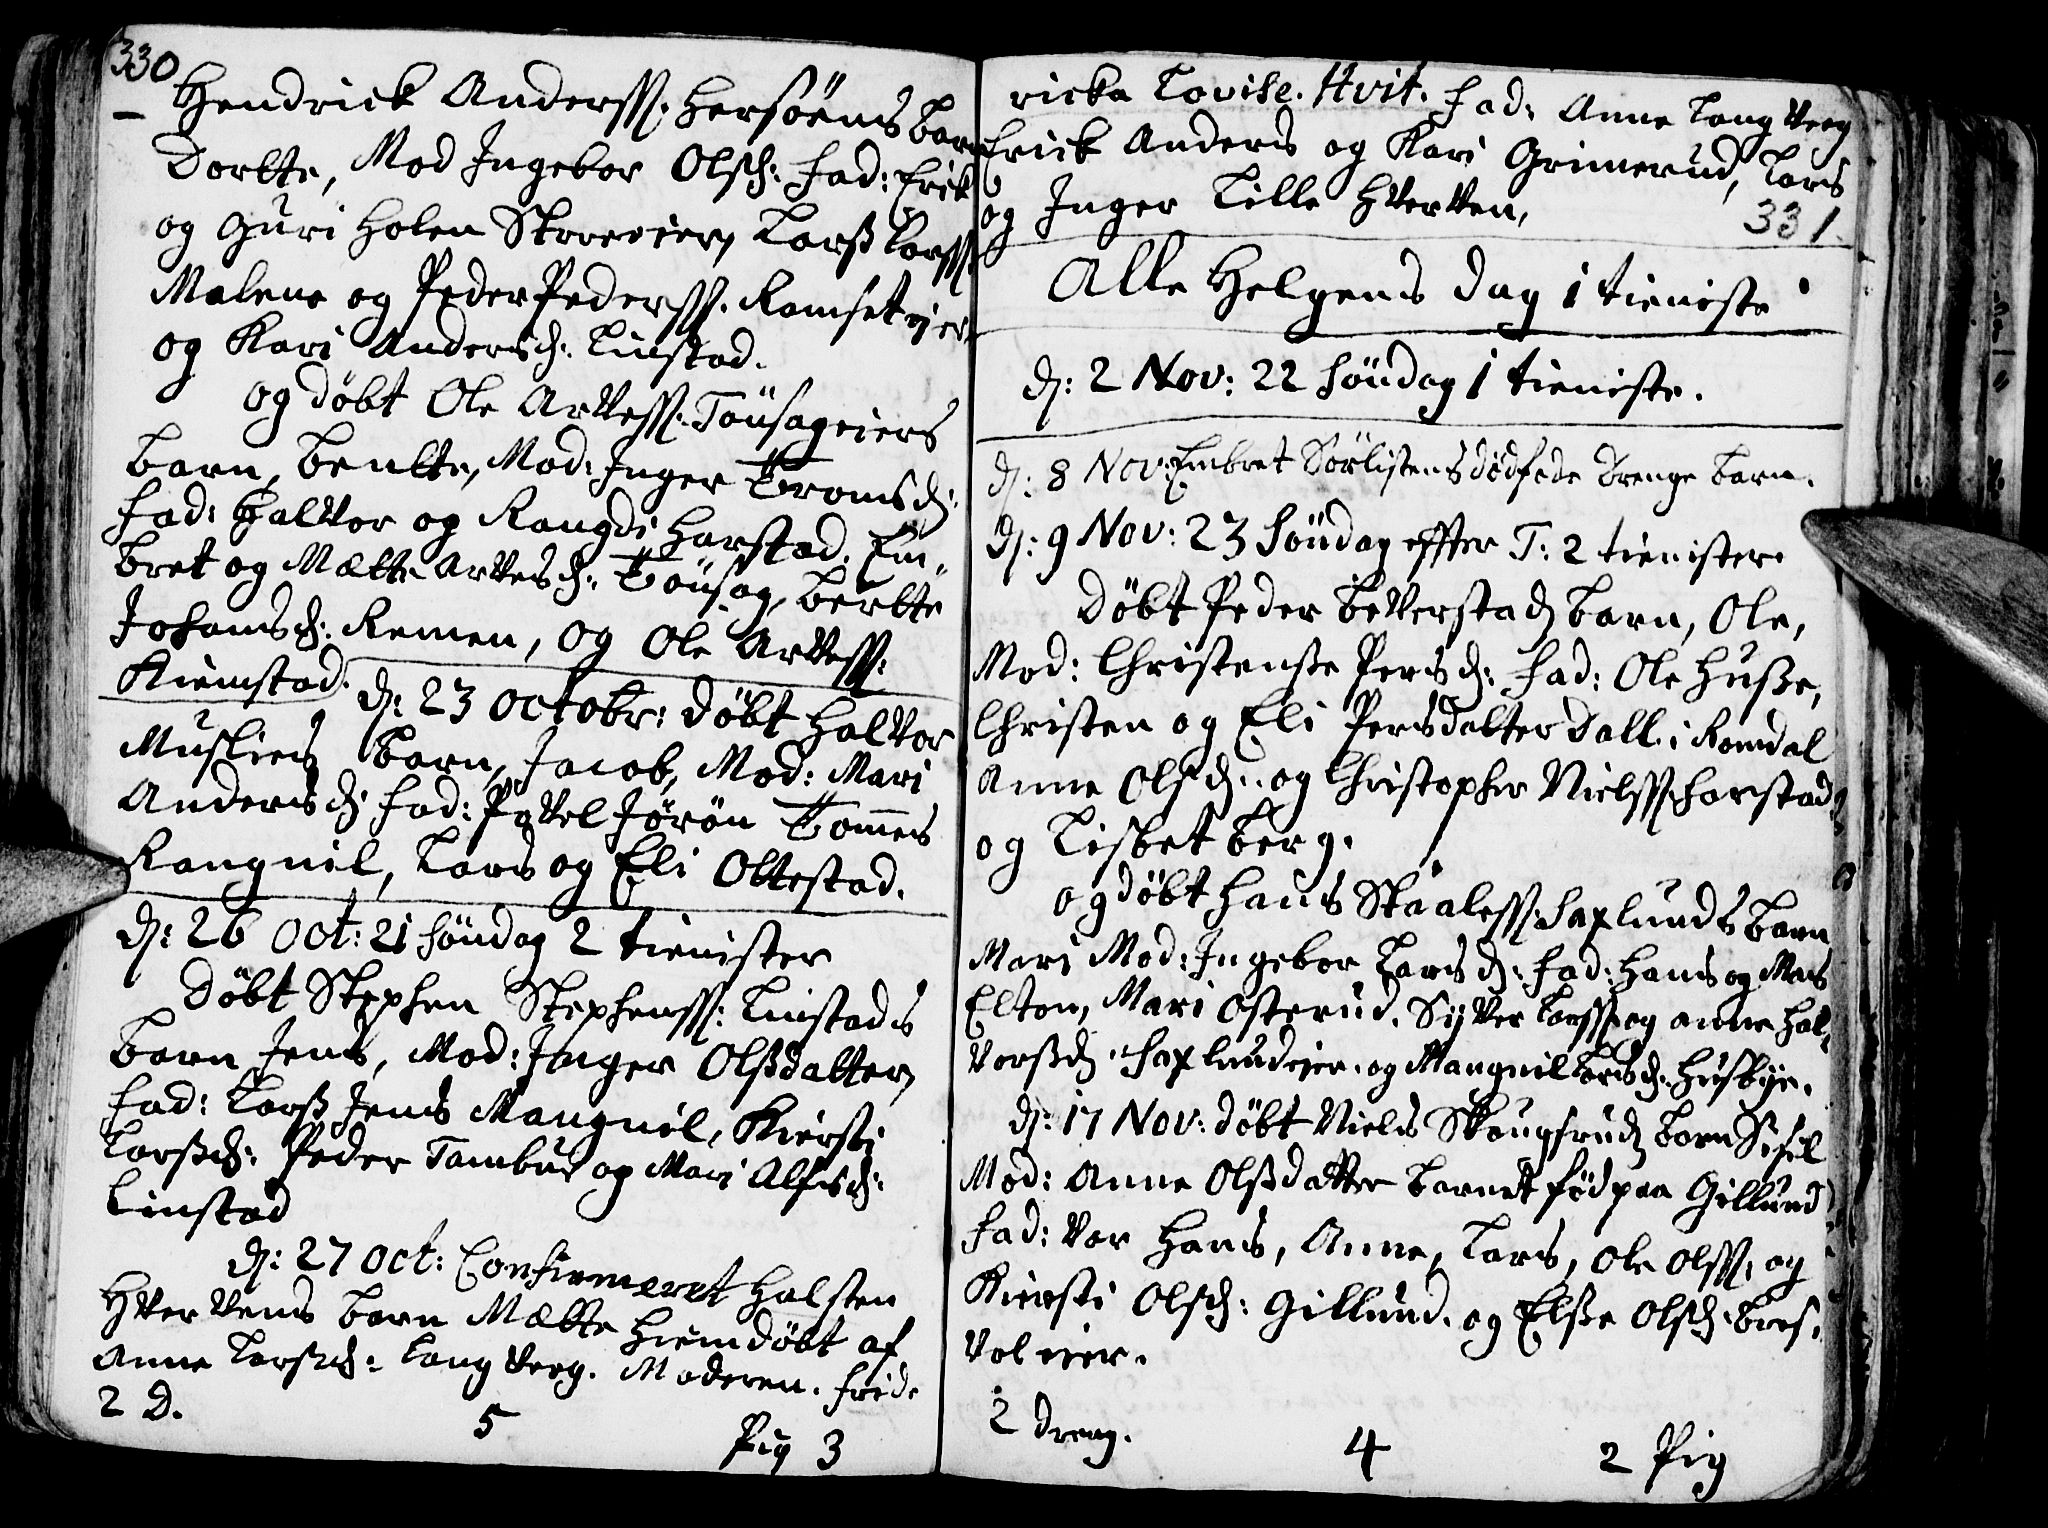 330
Hendrick Anderss: Hersöens barn
Dorthe, Mod Ingebor Olsd: fad: Erik
og Guri Holen Larss Larss:
Malene og Peder Pederss: Ramset ejer
og Kari Andersd: Linstad.
og döbt Ole Arvess: Tousageiers
barn, Benthe, Mod: Inger Tromsd:
fad: Halvor og Rangdi Harstad. Em-
bret og Mætte Arvesd: Tousag, Berthe
Johansd: Remen, og Ole Arvess:
Kiemstad.
d: 23 Octobr: döbt Halvor
Musliens barn, Jacob, Mod: Mari
Andersd fad: Povel Jörön Tommes
Rangnil, Lars og Eli Oltestad.
d: 26 Oct: 21 Söndag 2 tienister
Döbt Stephen Stephenss: Linstads
barn Jens, Mod: Inger Olssdatter,
fad: Larss Jens Mangnil, Kiersti
Larssd: Peder Tambur og Mari Alfsd:
Linstad
d: 27 Oct: Confirmeret Halsten
Hvervens barn Mætte Hiemdöbt af
Anne Larssd: Langverg. Moderen. Fride
2 D. 5 Pig 3
ricka Lovise. Hvit. fad: Anne Langverg
Erick Anders og Kari Grimerud, Lars
og Inger Lille Hverven,
331.
Alle Helgens Dag 1 tieniste
d: 2 Nov: 22 Söndag 1 tieniste.
d: 8 Nov: Embret Sörlistens dödföde Drenge barn.
d: 9 Nov: 23 Söndag effter T: 2 tienister
Döbt Peder Beverstad barn, Ole,
Mod: Christensse Persd: fad: Ole Husse,
Christen og Eli Persdatter Dall i Romdal
Anne Olsd: og Christopher Nielss: Harstad
og Lisbet Berg.
og döbt Hans Skaaless: Saxlunds barn
Mari Mod: Ingebor Larsd: fad: Hans og Mari
Elton, Mari Osterud. Syver Larss og Anne Hal-
vorssd: Saxlundejer. og Mangnil Larsd: Husbye.
d: 17 Nov: döbt Niels Skougsrud barn Sisel
Mod: Anne Olssdatter barnet föd paa Gillund
fad: var Hans, Anne, Lars, Ole Olss: og
Kiersti Olsd: Gillund. og Elsse Olsd: Bres-
vol ejer.
2 dreng. 4 2 Pig